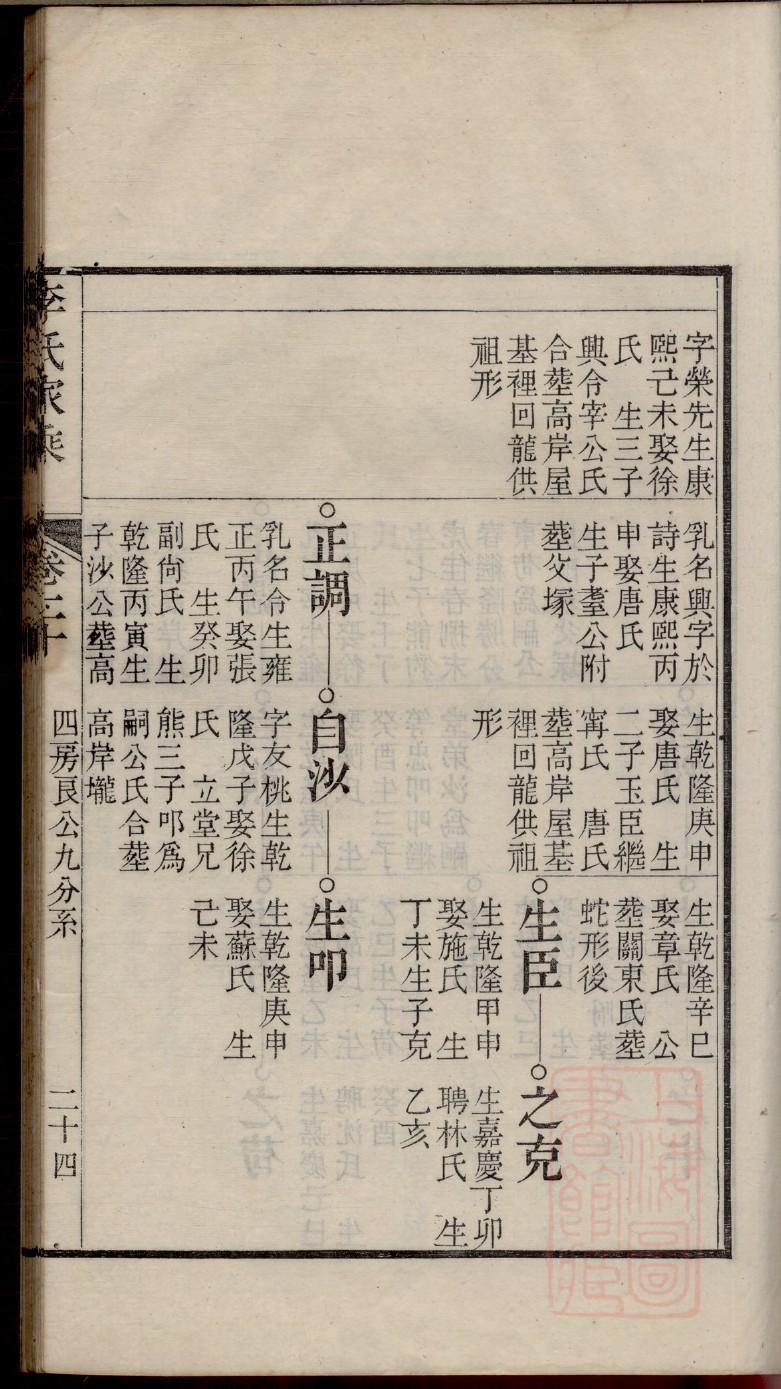 字榮先生康
熙己未娶徐
氏　生三子
興令宰公氏
合塟高岸屋
基裡回龍供
祖形
乳名興字於
詩生康熙丙
申娶唐氏
生子耋公附
塟父塚
生乾隆庚申
娶唐氏　生
二子玉臣繼
寗氏　唐氏
塟高岸屋基
裡回龍供祖
形
生乾隆辛巳
娶章氏　公
塟關東氏塟
蛇形後
生臣
生乾隆甲申
娶施氏　生
丁未生子克
之克
生嘉慶丁卯
聘林氏　生
乙亥
正調
乳名令生雍
正丙午娶張
氏　生癸卯
副尙氏　生
乾隆丙寅生
子沙公塟高
高岸壠
自沙
字友桃生乾
隆戊子娶徐
氏　立堂兄
熊三子叩爲
嗣公氏合塟
生叩
生乾隆庚申
娶蘇氏　生
己未
李氏家乘
卷二十
四房良公九分系
二十四